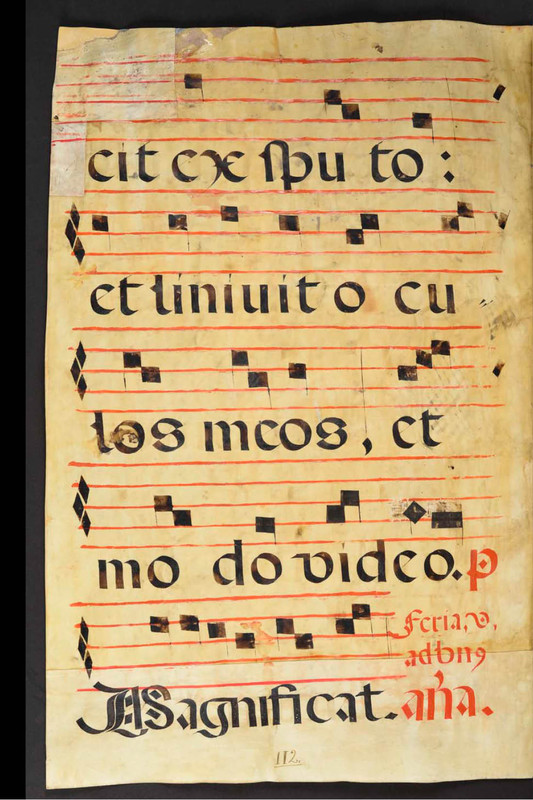 cit ex spu to :
et liniuit o cu
los meos, et
mo do video. p
Feria, v,
ad bn9
Magnificat. aña.
112.